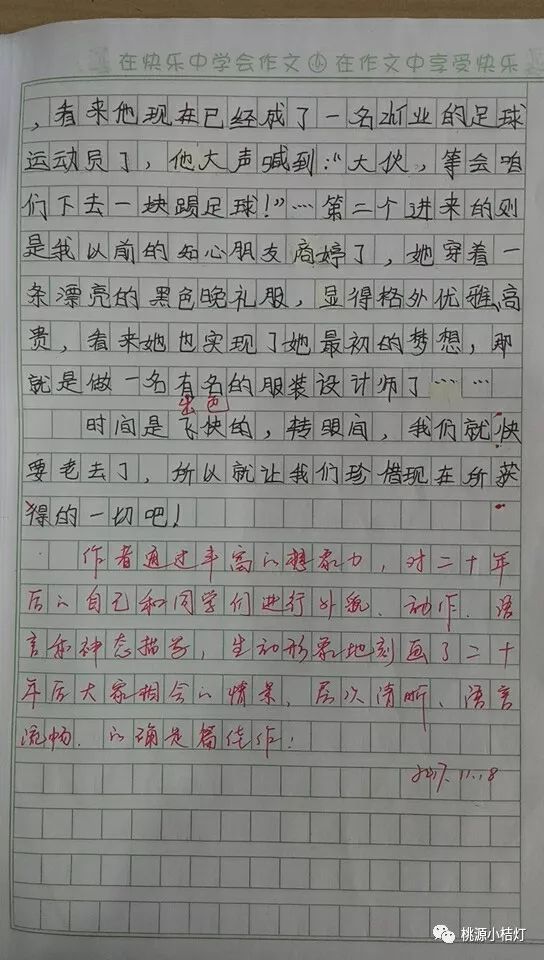 在快乐中学会作文 在作文中享受快乐
，看来他现在已经成了一名zhí业的足球
运动员了，他大声喊到：“大伙，等会咱
们下去一块踢足球！”…第二个进来的则
是我以前的知心朋友商婷了，她穿着一
条漂亮的黑色晚礼服，显得格外优雅、高
贵，看来她也实现了她最初的梦想，那
就是做一名有名的服装设计师了……
出色
时间是飞快的，转眼间，我们就快
要老去了，所以就让我们珍惜现在所获
得的一切吧！
作者通过丰富的想象力，对二十年
后的自己和同学们进行外貌、动作、语
言和神态描写，生动形象地刻画了二十
年后大家相会的情景，层次清晰、语言
流畅，的确是篇佳作！
2017.11.18
桃源小桔灯